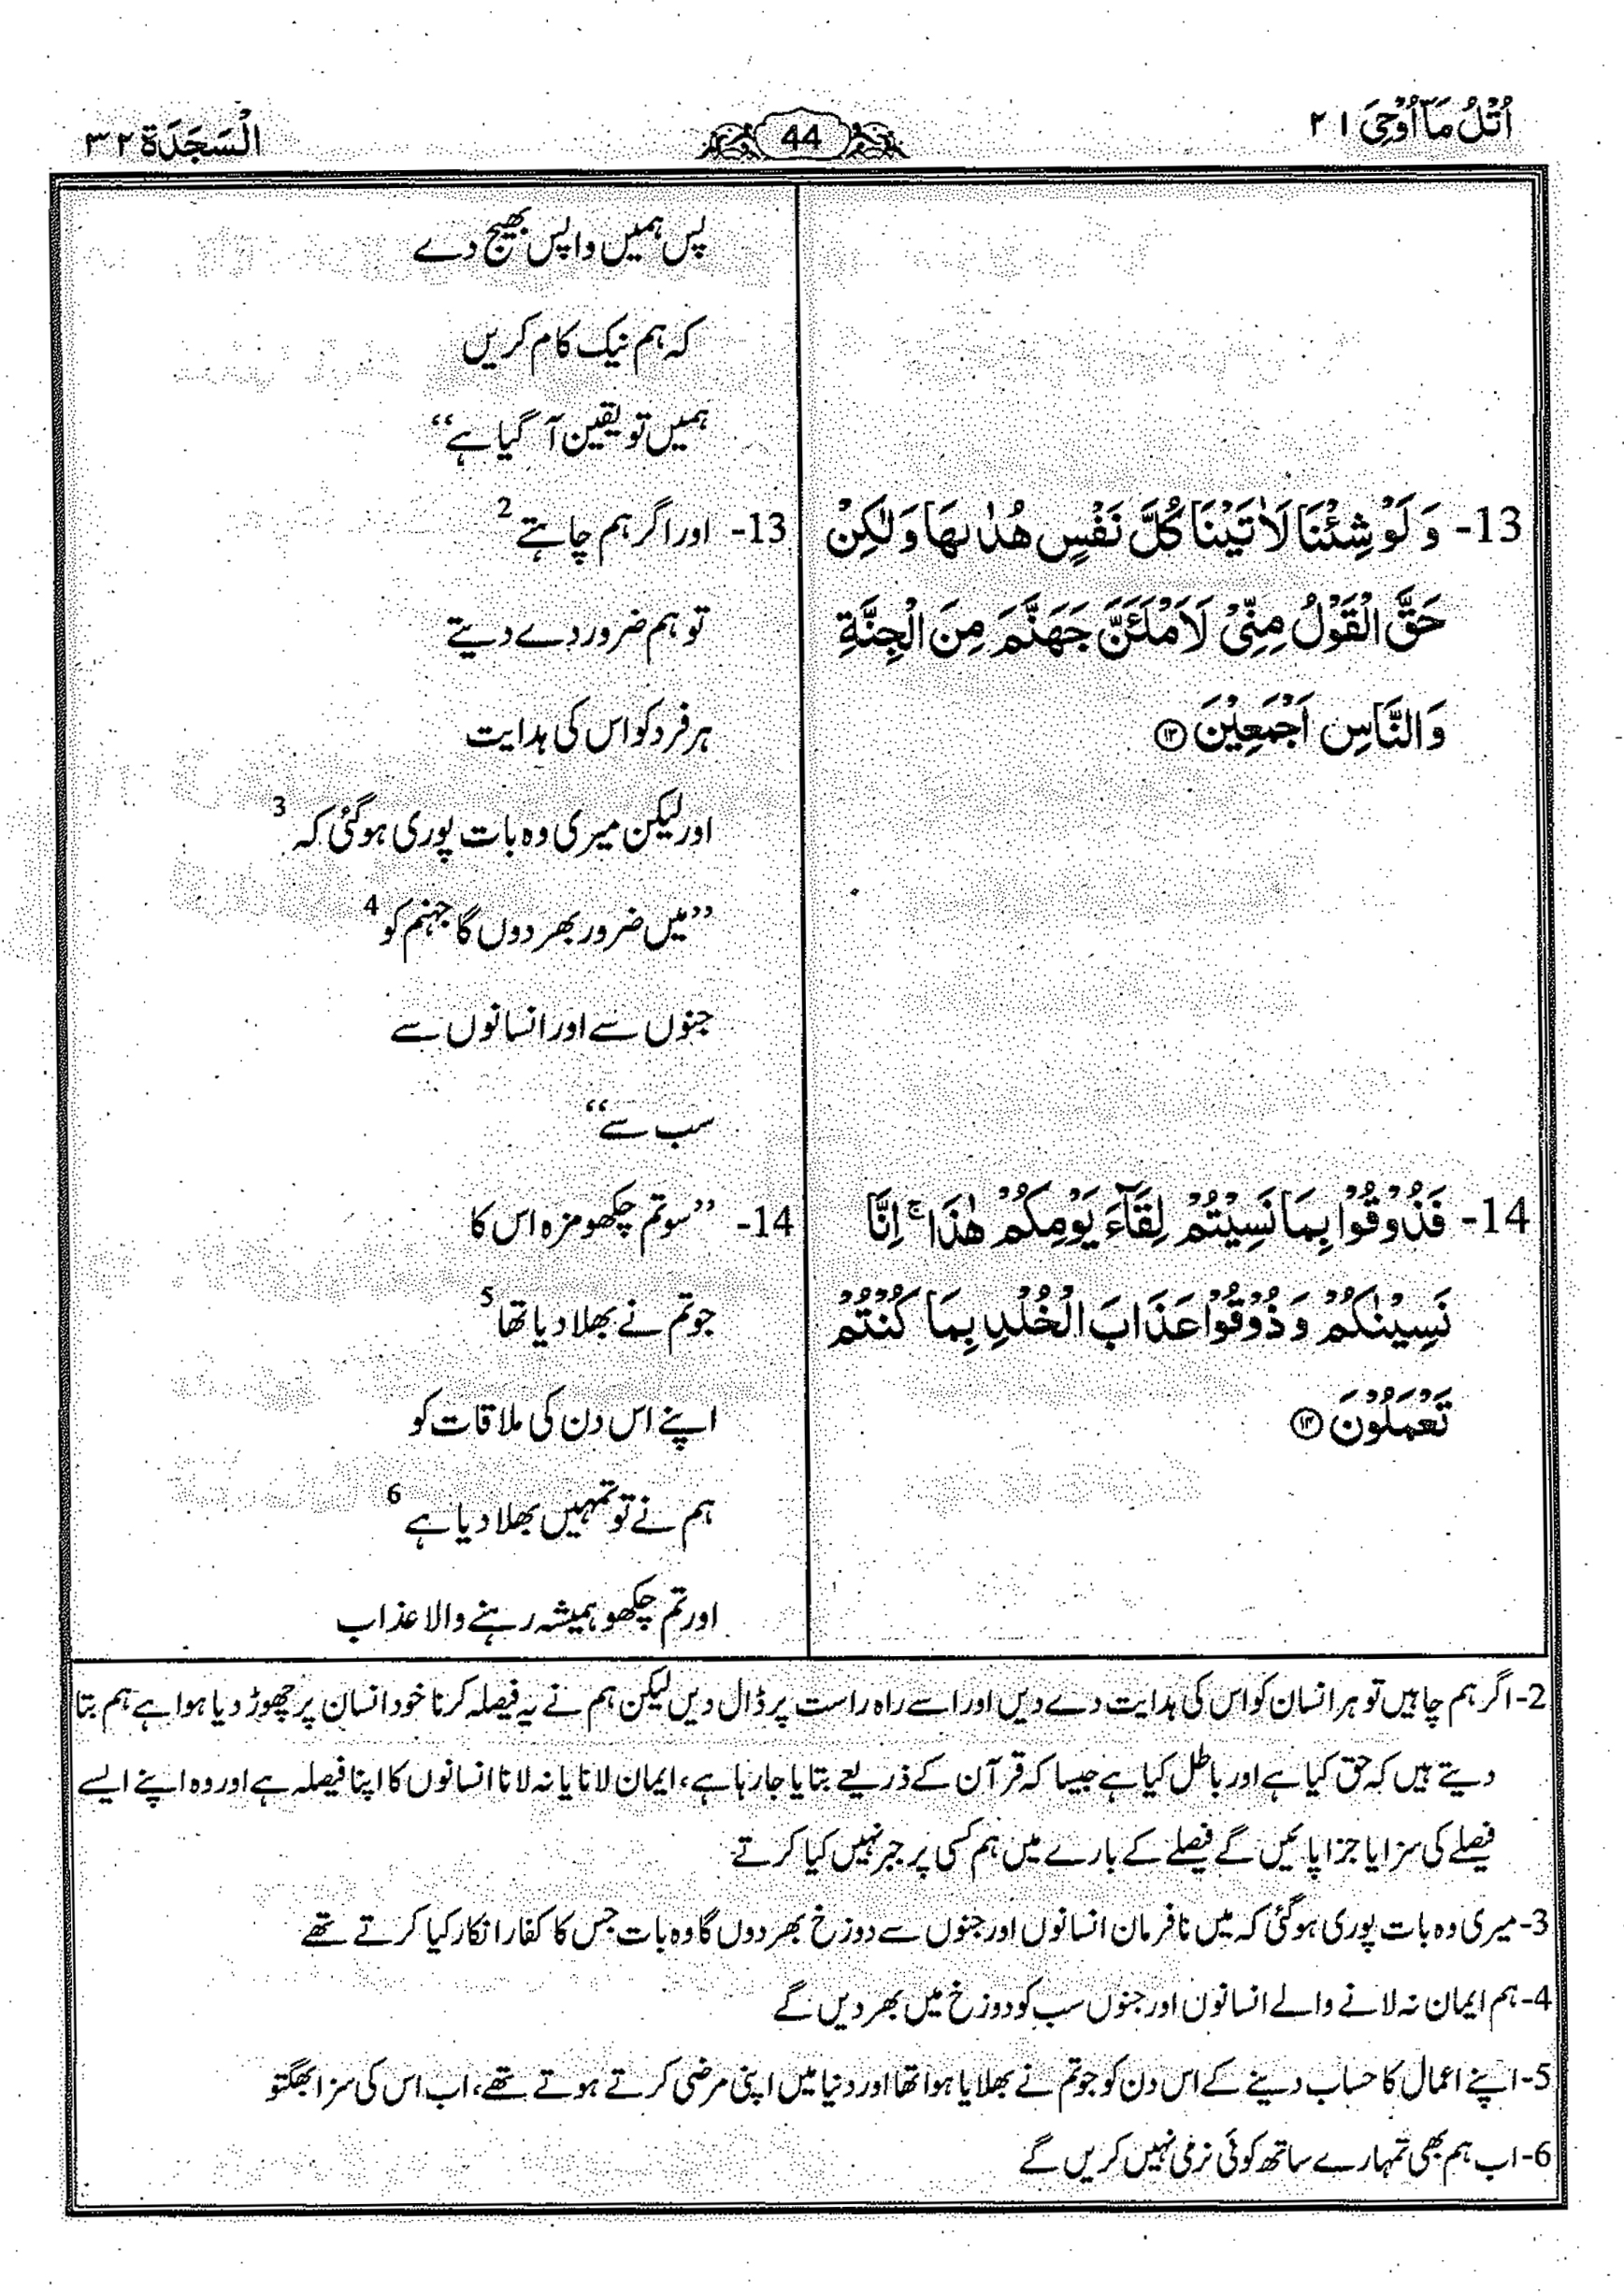 اُتْلُ مَآ اُوْحِیَ ۲۱
44
اَلسَّجْدَة ۳۲
پس ہمیں واپس بھیج دے
کہ ہم نیک کام کریں
ہمیں تو یقین آ گیا ہے‘‘
13- وَ لَوْ شِئْنَا لَاٰتَیْنَا كُلَّ نَفْسٍ هُدٰىهَا وَ لٰكِنْ
حَقَّ الْقَوْلُ مِنِّیْ لَاَمْلَـَٔنَّ جَهَنَّمَ مِنَ الْجِنَّةِ
وَ النَّاسِ اَجْمَعِیْنَ ۝۱۳
13- اور اگر ہم چاہتے 2
تو ہم ضرور دے دیتے
ہر فرد کو اس کی ہدایت
اور لیکن میری وہ بات پوری ہو گئی کہ 3
’’میں ضرور بھر دوں گا جہنم کو 4
جنوں سے اور انسانوں سے
سب سے‘‘
14- فَذُوْقُوْا بِمَا نَسِیْتُمْ لِقَآءَ یَوْمِكُمْ هٰذَا ۚ اِنَّا
نَسِیْنٰكُمْ وَ ذُوْقُوْا عَذَابَ الْخُلْدِ بِمَا كُنْتُمْ
تَعْمَلُوْنَ ۝۱۴
14- ’’سو تم چکھو مزہ اس کا
جو تم نے بھلا دیا تھا 5
اپنے اس دن کی ملاقات کو
ہم نے تو تمہیں بھلا دیا ہے 6
اور تم چکھو ہمیشہ رہنے والا عذاب
2- اگر ہم چاہیں تو ہر انسان کو اس کی ہدایت دے دیں اور اسے راہ راست پر ڈال دیں لیکن ہم نے یہ فیصلہ کرنا خود انسان پر چھوڑ دیا ہوا ہے ہم بتا
دیتے ہیں کہ حق کیا ہے اور باطل کیا ہے جیسا کہ قرآن کے ذریعے بتایا جا رہا ہے، ایمان لانا یا نہ لانا انسانوں کا اپنا فیصلہ ہے اور وہ اپنے ایسے
فیصلے کی سزا یا جزا پائیں گے فیصلے کے بارے میں ہم کسی پر جبر نہیں کیا کرتے
3- میری وہ بات پوری ہو گئی کہ میں نافرمان انسانوں اور جنوں سے دوزخ بھر دوں گا وہ بات جس کا کفار انکار کیا کرتے تھے
4- ہم ایمان نہ لانے والے انسانوں اور جنوں سب کو دوزخ میں بھر دیں گے
5- اپنے اعمال کا حساب دینے کے اس دن کو جو تم نے بھلایا ہوا تھا اور دنیا میں اپنی مرضی کرتے ہوتے تھے، اب اس کی سزا بھگتو
6- اب ہم بھی تمہارے ساتھ کوئی نرمی نہیں کریں گے